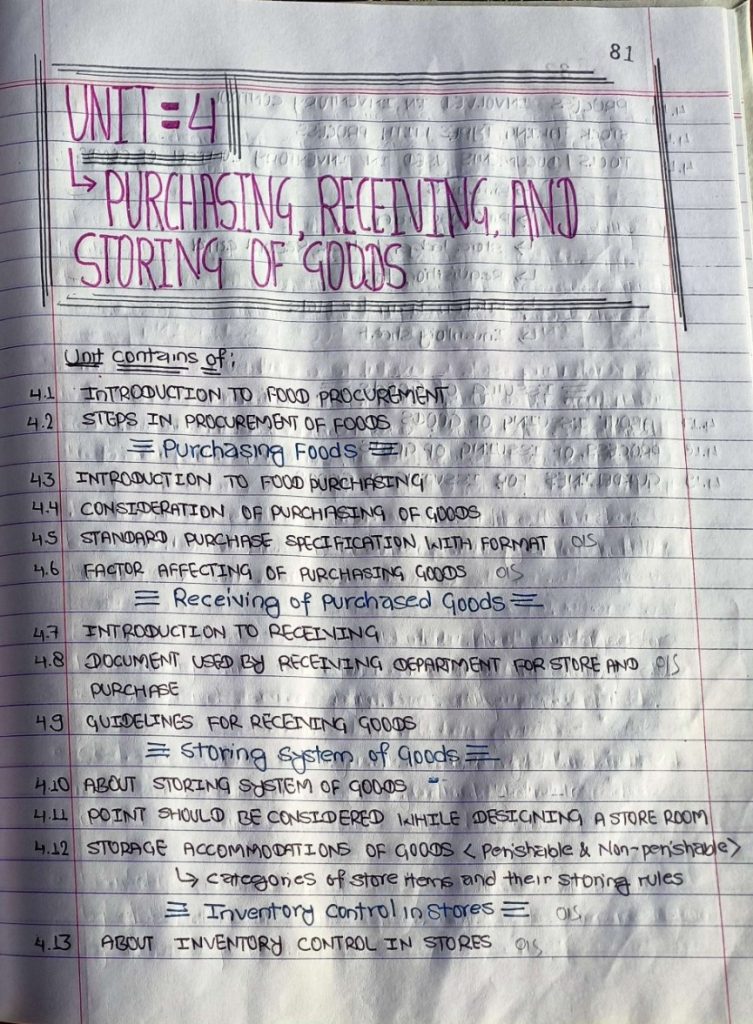 81
UNIT = 4
↳ PURCHASING, RECEIVING, AND
STORING OF GOODS
Unit contains of:
4.1 INTRODUCTION TO FOOD PROCUREMENT
4.2 STEPS IN PROCUREMENT OF FOODS
≡ Purchasing Foods ≡
4.3 INTRODUCTION TO FOOD PURCHASING
4.4 CONSIDERATION OF PURCHASING OF GOODS
4.5 STANDARD PURCHASE SPECIFICATION WITH FORMAT
4.6 FACTOR AFFECTING OF PURCHASING GOODS
≡ Receiving of purchased Goods ≡
4.7 INTRODUCTION TO RECEIVING
4.8 DOCUMENT USED BY RECEIVING DEPARTMENT FOR STORE AND
PURCHASE
4.9 GUIDELINES FOR RECEIVING GOODS
≡ Storing System of Goods ≡
4.10 ABOUT STORING SYSTEM OF GOODS
4.11 POINT SHOULD BE CONSIDERED WHILE DESIGNING A STORE ROOM
4.12 STORAGE ACCOMMODATIONS OF GOODS < Perishable & Non-perishable>
↳ categories of store items and their storing rules
≡ Inventory control in stores ≡
4.13 ABOUT INVENTORY CONTROL IN STORES